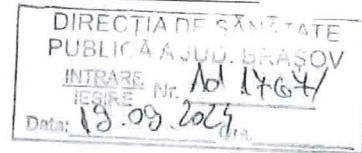 DIRECȚIA DE SĂNĂTATE
PUBLICĂ A JUD. BRAȘOV
INTRARE
IEȘIRE Nr.
Data: 19.09.2024